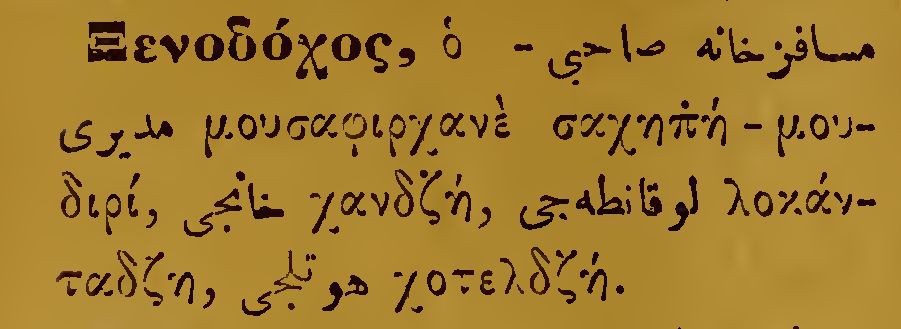 Ξενοδόχος, ὁ - مسافرخانه صاحبى-
مديرى μουσαφιρχανὲ σαχηπ̇ή - μου-
διρί, خانجى χανδζή, لوقانطه‌جى λοκάν-
ταδζη, هوتلجى χοτελδζή.